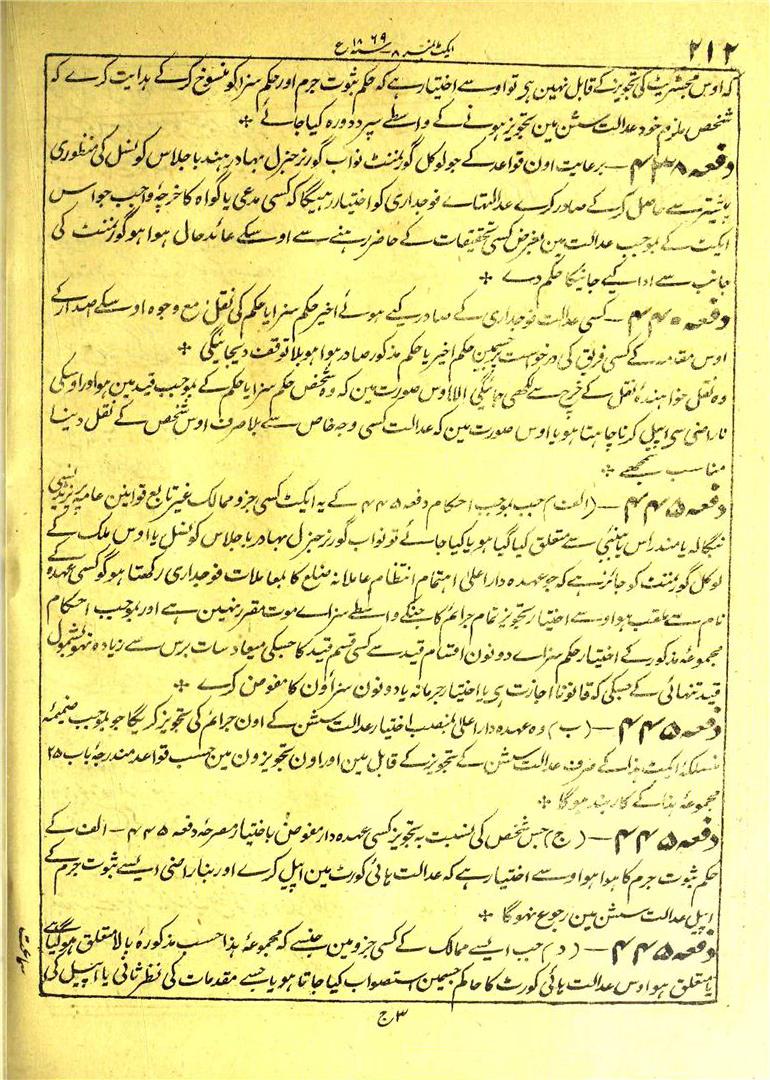 ۲۱۲
ایکٹ نمبر ۸ سنہ ۱۸۶۹ع
کہ اوس مجسٹریٹ کی تجویز کے قابل نہین ہی تو اوسے اختیار ہے کہ حکم ثبوت جرم اور حکم سزا کو منسوخ کر کے ہدایت کرے کہ
شخص ملزم خود عدالت سشن مین تجویز ہونے کے واسطے سپرد دورہ کیا جائے ٭
دفعہ ۴۳۵ — برعایت اون قواعد کے جو لوکل گورنمنٹ نواب گورنر جنرل بہادر ہند باجلاس کونسل کی منظوری
پیشتر سے حاصل کر کے صادر کرے عدالتہاے فوجداری کو اختیار رہیگا کہ کسی مدعی یا گواہ کا خرچہ واجب جو اس
ایکٹ کے بموجب عدالت مین بغرض کسی تحقیقات کے حاضر رہنے سے اوسکے عائد حال ہوا ہو گورنمنٹ کی
جانب سے ادا کیے جانیکا حکم دے ٭
دفعہ ۴۴۰ — کسی عدالت فوجداری کے صادر کیے ہوئے اخیر حکم سزا یا حکم کی نقل مع وجوہ اوسکے اصدار کے
اوس مقدمہ کے کسی فریق کی درخواست پر جسمین حکم اخیر یا حکم مذکور صادر ہوا ہو بلا توقف دیجائیگی ٭
وہ نقل خواہندۂ نقل کے خرچ سے لکھی جائیگی الا اوس صورت مین کہ وہ شخص حکم سزا یا حکم کے بموجب قید مین ہو اور اوسکی
ناراضی سی اپیل کرنا چاہتا ہو یا اوس صورت مین کہ عدالت کسی وجہ خاص سے بلا صرف اوس شخص کے نقل دینا
مناسب سمجھے ٭
دفعہ ۴۴۵ — (الف) جب بموجب احکام دفعہ ۴۴۵ کے یہ ایکٹ کسی جزو ممالک غیر تابع قوانین عامہ پریزیڈنسی
بنگالہ یا مندراس یا بمبئی سے متعلق کیا گیا ہو یا کیا جائے تو نواب گورنر جنرل بہادر باجلاس کونسل یا اوس ملک کے
لوکل گورنمنٹ کو جائز ہے کہ جو عہدہ دار اعلی اہتمام انتظام عاملانہ ضلع کا بمعاملات فوجداری رکھتا ہو گو کسی عہدہ کے
نام سے ملقب ہو اوسے اختیار تجویز تمام جرائم کا جنکے واسطے سزاے موت مقرر نہین ہے اور بموجب احکام
مجموعۂ مذکور کے اختیار حکم سزاے دونون اقسام قید سے کسی قسم قید کا جسکی میعاد سات برس سے زیادہ نہو بشمول
قید تنہائی کے جسکی کہ قانوناً اجازت ہی یا اختیار جرمانہ یا دونون سزاؤن کا مفوض کرے ٭
دفعہ ۴۴۵ — (ب) وہ عہدہ دار اعلی بمنصب اختیار عدالت سشن کے اون جرائم کی تجویز کریگا جو بموجب ضمیمۂ
منسلکۂ ایکٹ ہذا کے صرف عدالت سشن کے تجویز کے قابل ہین اور اون تجویزون مین حسب قواعد مندرجۂ باب ۲۵
مجموعۂ ہذا کے کاربند ہوگا ٭
دفعہ ۴۴۵ — (ج) جس شخص کی نسبت بہ تجویز کسی عہدہ دار مفوض باختیار مصرحۂ دفعہ ۴۴۵ – الف کے
حکم ثبوت جرم کا ہوا ہو اوسے اختیار ہے کہ عدالت ہائی کورٹ مین اپیل کرے اور بنا راضی ایسے ثبوت جرم کے
اپیل عدالت سشن مین رجوع نہوگا ٭
دفعہ ۴۴۵ — (د) جب ایسے ممالک کے کسی جزو مین جنسے کہ مجموعۂ ہذا حسب مذکورۂ بالا متعلق ہوگیا ہے
یا متعلق ہو اوس عدالت ہائی کورٹ کا حاکم جسمین استصواب کیا جاتا ہو یا جسے مقدمات کی نظر ثانی یا اپیل کی
۳ ج